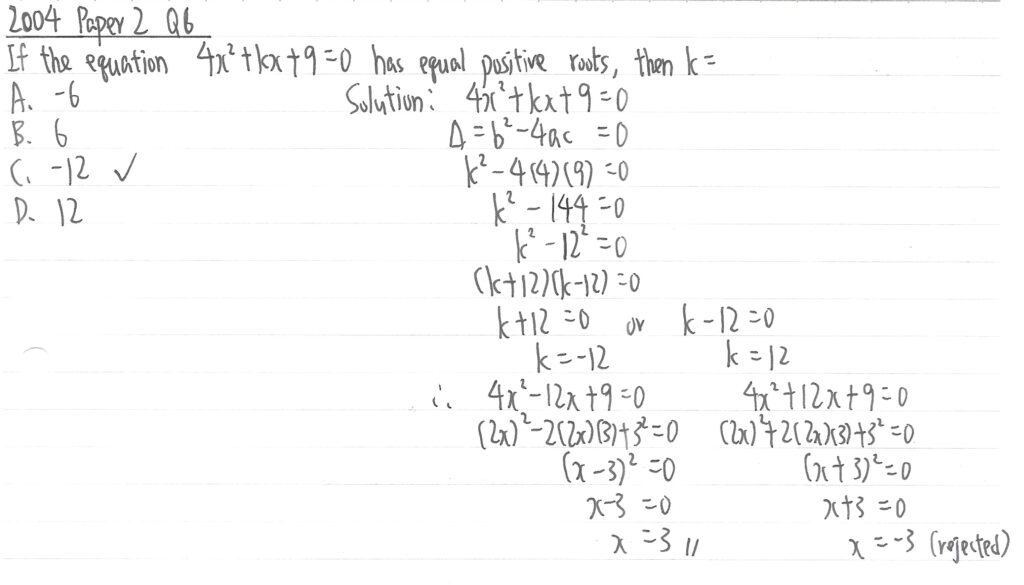 2004 Paper 2 Q6
If the equation 4x²+kx+9=0 has equal positive roots, then k=
A. -6
B. 6
C. -12 ✓
D. 12
Solution: 4x²+kx+9=0
Δ=b²-4ac =0
k²-4(4)(9)=0
k²-144=0
k²-12²=0
(k+12)(k-12)=0
k+12=0 or k-12=0
k=-12 k=12
∴ 4x²-12x+9=0 4x²+12x+9=0
(2x)²-2(2x)(3)+3²=0 (2x)²+2(2x)(3)+3²=0
(x-3)²=0 (x+3)²=0
x-3=0 x+3=0
x=3 // x=-3 (rejected)